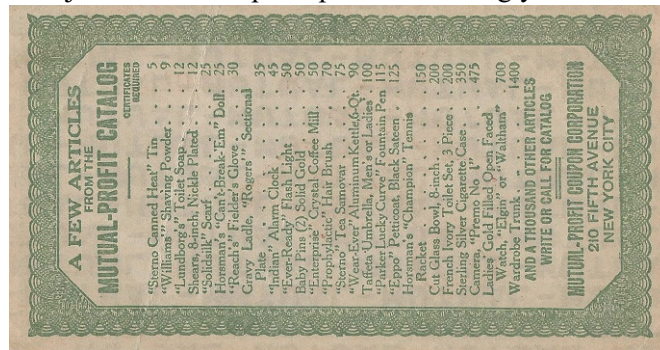 A FEW ARTICLES
FROM THE
MUTUAL-PROFIT CATALOG
CERTIFICATES
REQUIRED
"Sterno Canned Heat" Tin 5
"Williams'" Shaving Powder. 9
"Lundborg's" Toilet Soap 12
Shears, 8-inch, Nickle Plated 12
"Solidsilk" Scarf 25
Horsman's "Can't-Break-'Em" Doll. 25
"Reach's" Fielder's Glove 30
Gravy Ladle, "Rogers" Sectional
Plate 35
"Indian" Alarm Clock 45
"Ever-Ready" Flash Light 50
Baby Pins (2) Solid Gold 50
"Enterprise" Crystal Coffee Mill. 50
"Prophylactic" Hair Brush 70
"Sterno" Tea Samovar 75
"Wear-Ever" Aluminum Kettle, 6-Qt. 90
Taffeta Umbrella, Men's or Ladies' 100
"Parker Lucky Curve" Fountain Pen 115
"Eppo" Petticoat, Black Sateen 125
Horsman's "Champion" Tennis
Racket 150
Cut Glass Bowl, 8-inch. 200
French Ivory Toilet Set, 3 Piece 200
Sterling Silver Cigarette Case 350
Camera, "Premo No. 1" 475
Ladies Gold Filled Open Faced
Watch, "Elgin" or "Waltham" 700
Wardrobe Trunk 1400
AND A THOUSAND OTHER ARTICLES
WRITE OR CALL FOR CATALOG
MUTUAL-PROFIT COUPON CORPORATION
210 FIFTH AVENUE
NEW YORK CITY